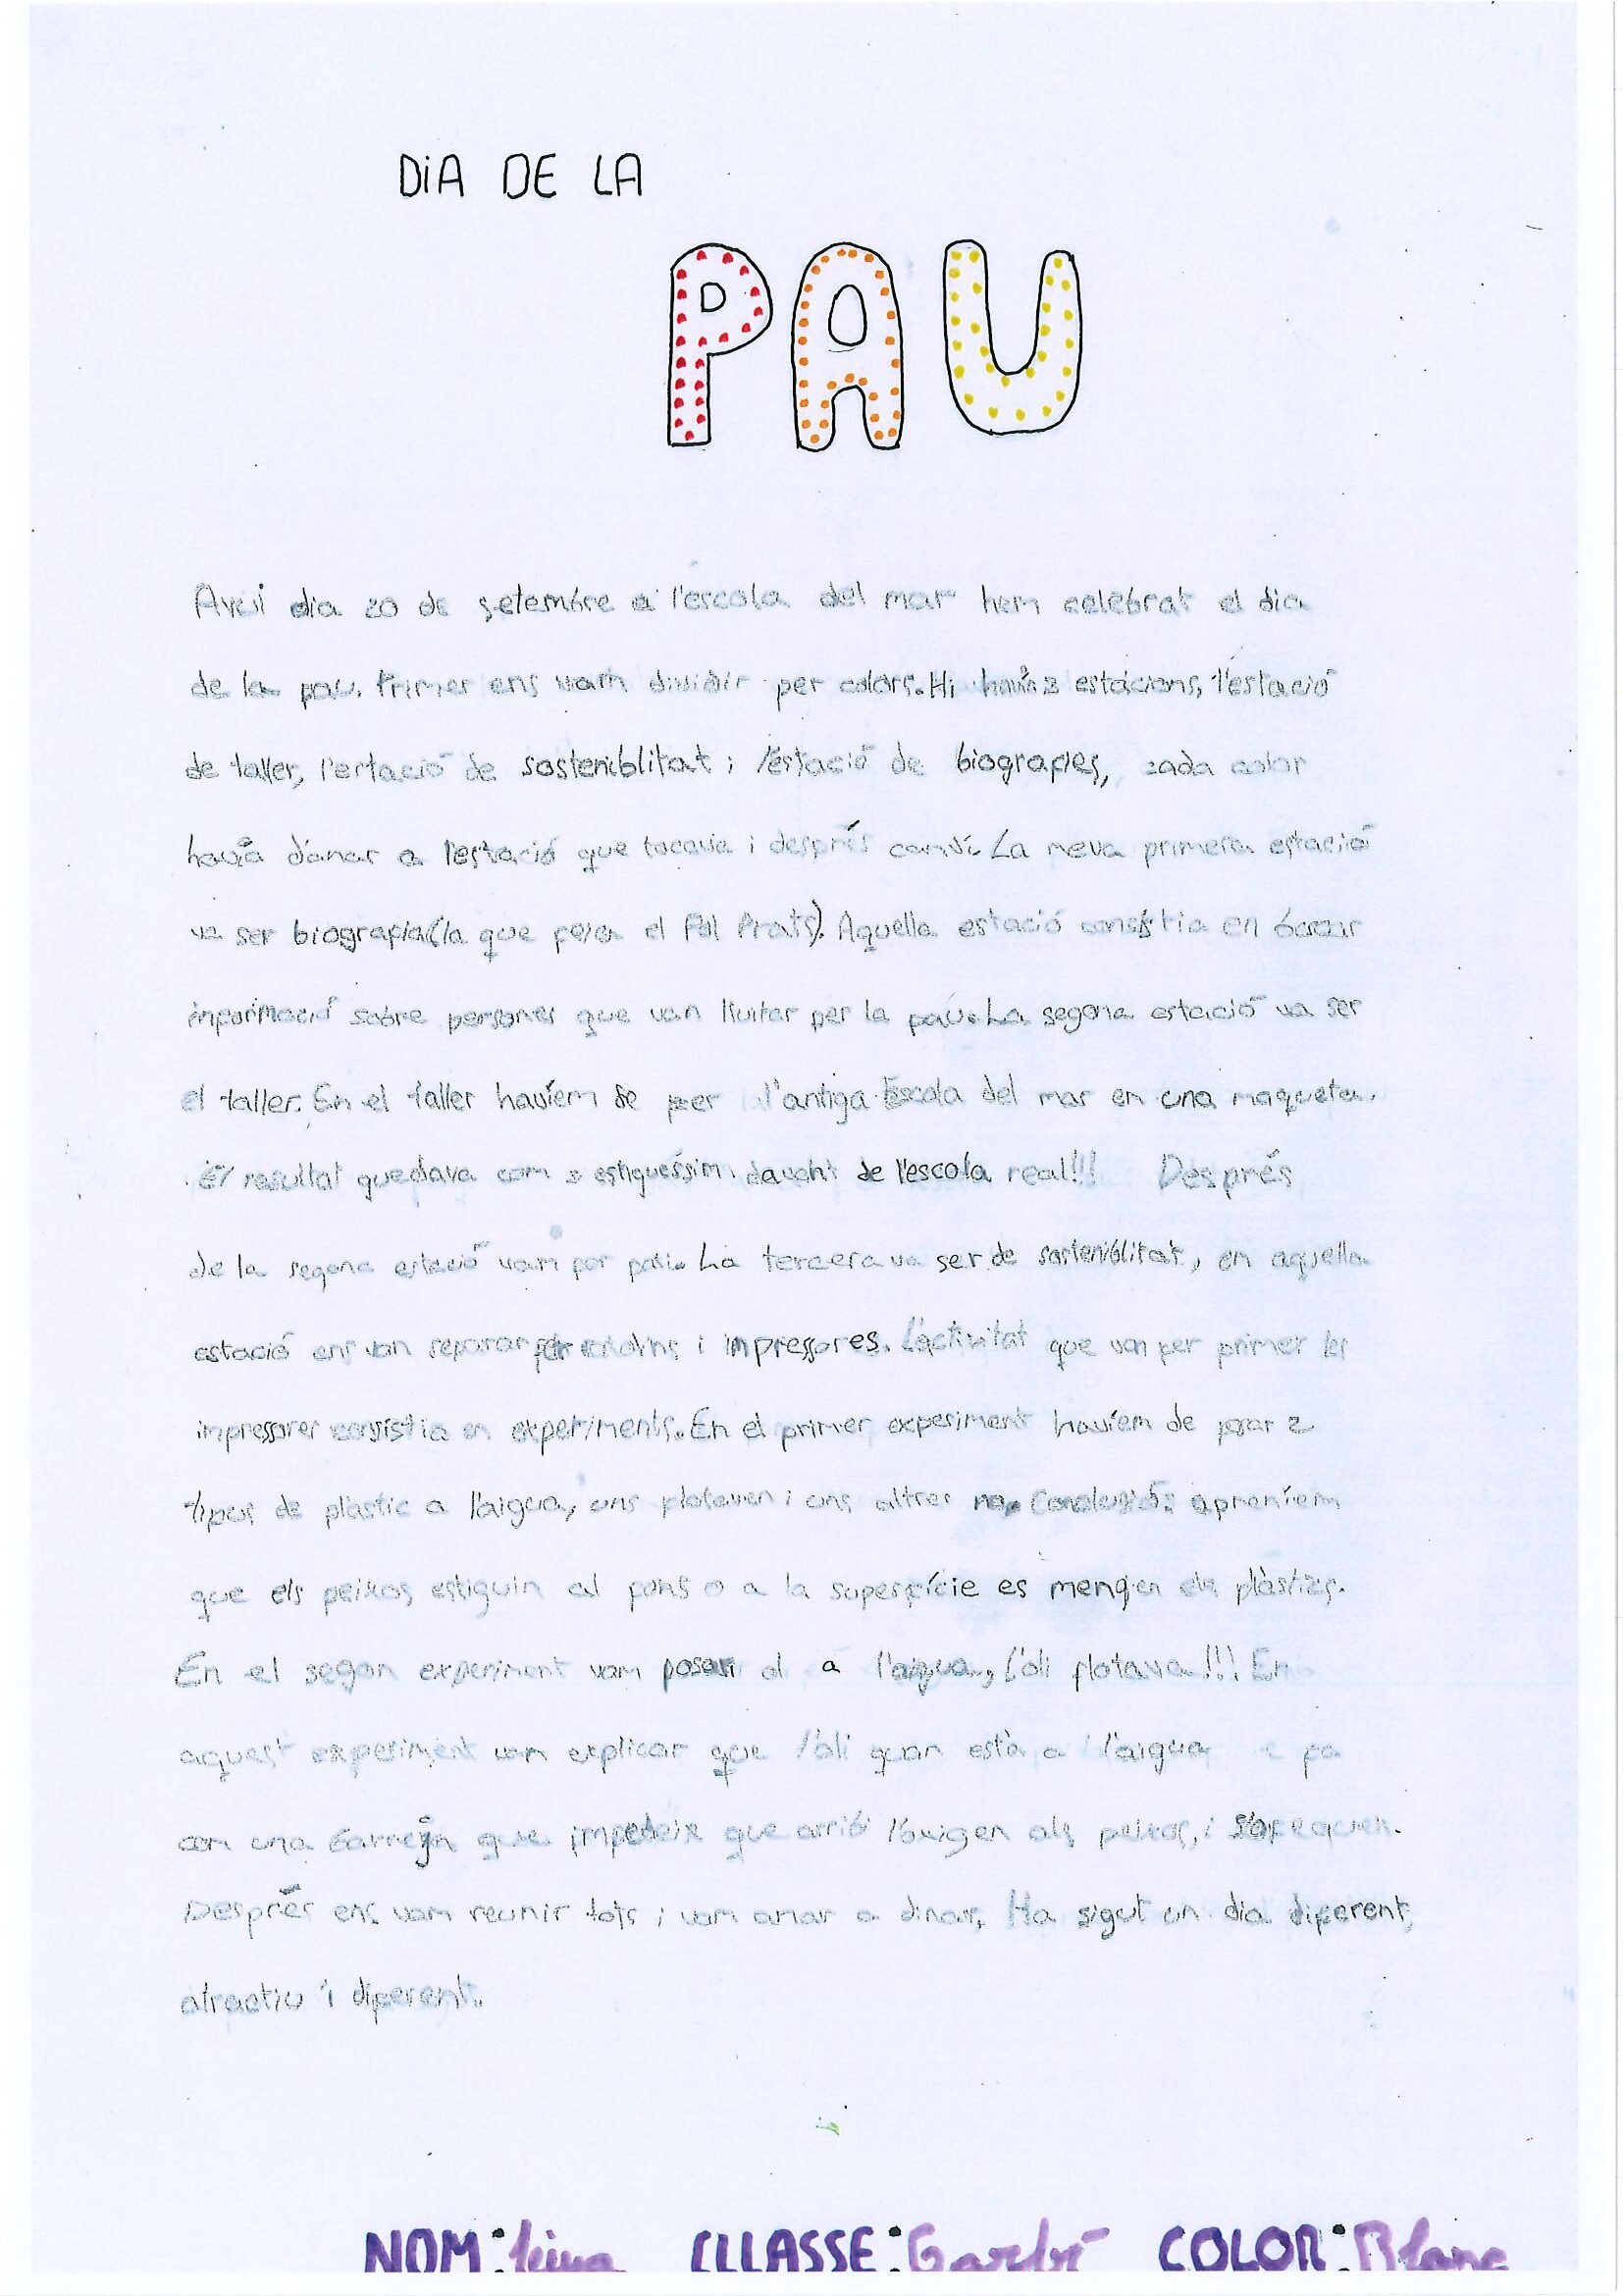 DIA DE LA
PAU
Avui dia 20 de setembre a l'escola del mar hem celebrat el dia
de la pau. Primer ens vam dividir per colors. Hi havia 3 estacions, l'estació
de taller, l'estació de sosteniblitat i l'estació de biografies, cada color
havia d'anar a l'estació que tocava i després canvi. La meva primera estació
va ser biografia (la que feia el Pol Prats). Aquella estació consistia en buscar
informació sobre persones que van lluitar per la pau. La segona estació va ser
el taller. En el taller havíem de fer l'antiga Escola del mar en una maqueta.
El resultat quedava com si estiguéssim davant de l'escola real!!! Després
de la segona estació vam fer pati. La tercera va ser de sosteniblitat, en aquella
estació ens van separar per i impressores. L'activitat que van fer primer les
impressores consistia en experiments. En el primer experiment havíem de posar 2
tipus de plàstic a l'aigua, uns flotaven i uns altres no. Conclusió: apreníem
que els peixos estiguin al fons o a la superfície es mengen els plàstics.
En el segon experiment vam posar ol a l'aigua, l'oli flotava!!! En
aquest experiment vam explicar que l'oli quan està a l'aigua fa
com una barreja que impedeix que arribi l'oxigen als peixos, i s'ofequen.
Després ens vam reunir tots i vam anar a dinar. Ha sigut un dia diferent,
atractiu i diferent.
NOM: leiua CLLASSE: Garbí COLOR: Blanc